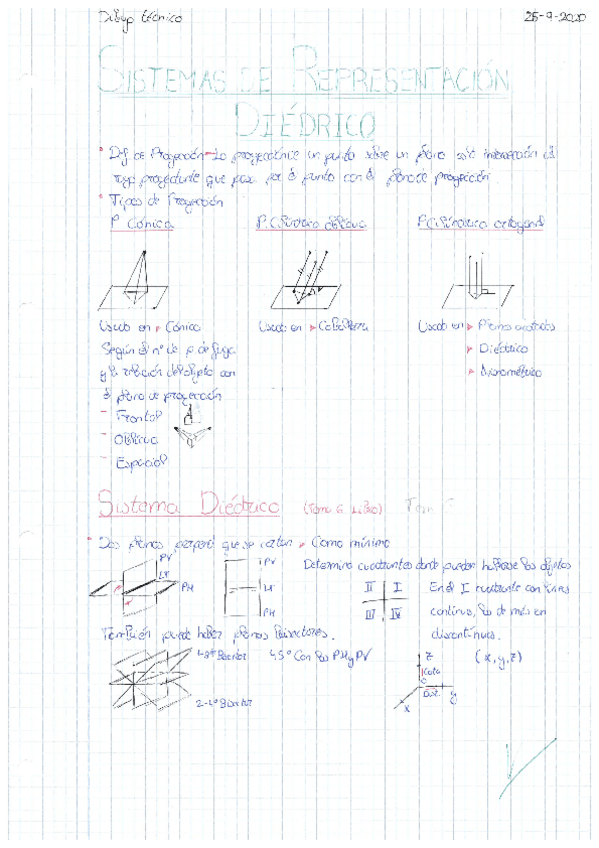 Dibujo técnico 25-9-2020
SISTEMAS DE REPRESENTACIÓN
DIÉDRICO
Def de Proyección La proyección de un punto sobre un plano es la intersección del
rayo proyectante que pasa por el punto con el plano de proyección
Tipos de Proyección
P Cónica P. Cilíndrica oblicua P Cilíndrica ortogonal
Usado en Cónico Usado en Caballera Usado en Planos acotados
Según el nº de p de fuga Diédrico
y la relación del objeto con Axonométrico
el plano de proyección
- Frontal
- Oblicua
- Espacial
Sistema Diédrico (Tema 6 Libro) Tem
Dos planos que se cortan Como mínimo
PV PV Determina cuadrantes donde pueden hallarse los objetos
LT PH LT II I En el I cuadrante con líneas
PH III IV continuas, los demás en
discontinuas.
También puede haber planos bisectores.
1-3er Bisector 45º Con los PH y PV Z (x,y,z)
Cota
O
2-4º Bisector x y